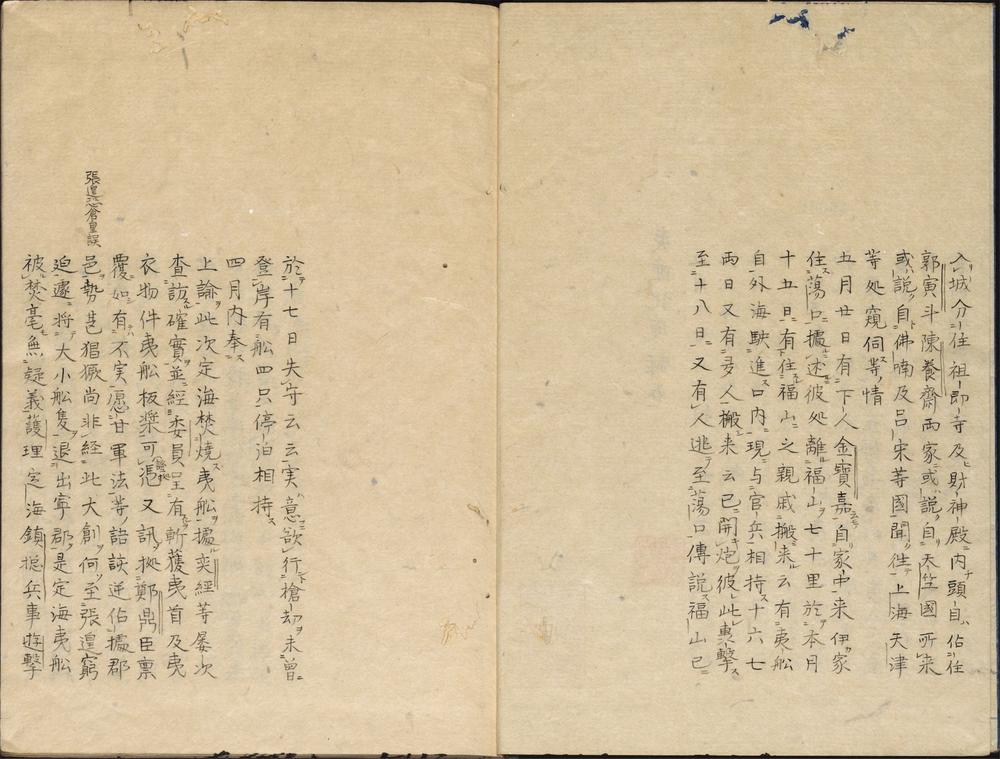 入城分住祖印寺及財神殿内頭自佔住
郭寅斗陳養齋両家或説自天竺國所来
或説自佛喃及呂宋等國聞往上海天津
等処窺伺等情
五月廿日有下人金寶嘉自家中来伊家
住蕩口據述彼処離福山七十里於本月
十五日有住福山之親戚搬来云有夷船
自外海駛進口内現与官兵相持十六七
両日又有多人搬来云已開炮彼此轟擊
至十八日又有人逃至蕩口傳説福山已
於十七日失守云云実意欲行搶劫未曽
登岸有船四只停泊相持
四月内奉
上諭此次定海焚燒夷船據奕經等屡次
査訪確實並經委員呈有斬獲夷首及夷
衣物件夷船板槳可憑又訊拠鄭鼎臣禀
覆如有不実愿甘軍法等語該逆佔據郡
邑勢甚猖獗尚非經此大創何至張遑窮
張遑恐倉皇誤
迫遽将大小船隻退出寧郡是定海夷船
被焚毫無疑義護理定海鎮摠兵事游擊